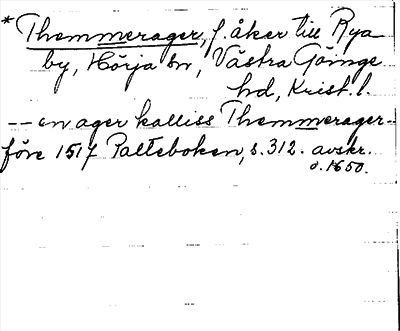 * Themmerager, f. åker till Rya
by, Hörja sn, Västra Göinge
hd, Krist. l.
-- en ager kalliss Themmerager --
före 1517 Palteboken, s. 312. avskr.
o. 1650.